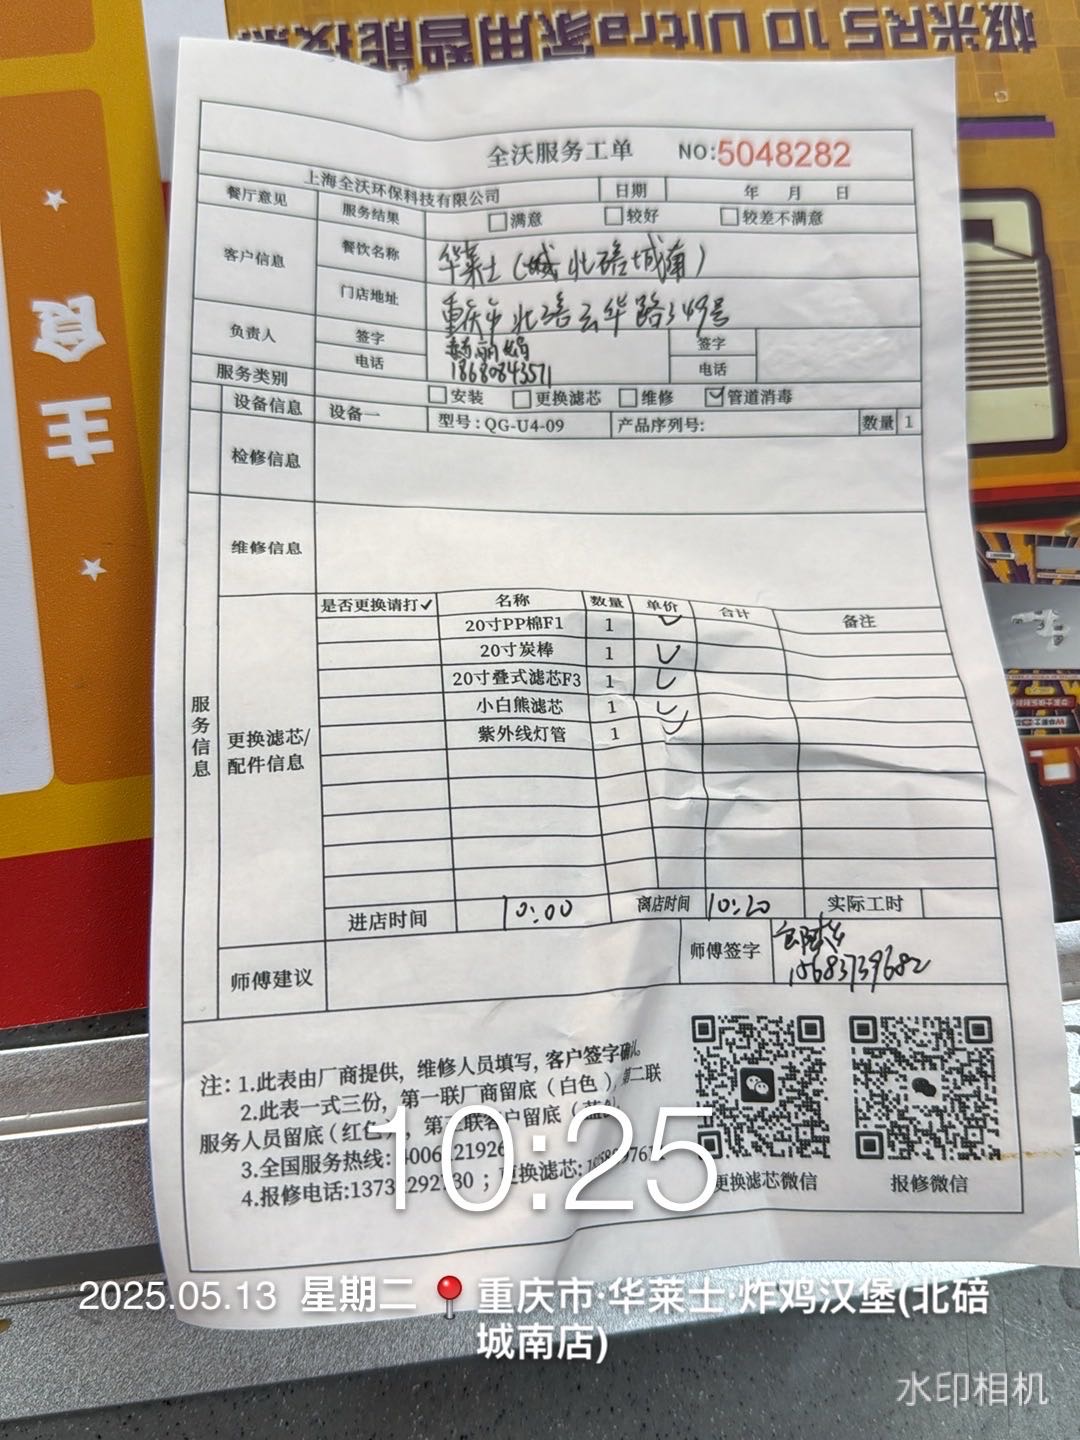 极米RS 10 Ultra家用智能投
主食
全沃服务工单 NO:5048282
上海全沃环保科技有限公司 日期 年 月 日
餐厅意见 服务结果 满意 较好 较差不满意
客户信息 餐饮名称 华莱士(城北碚城南)
门店地址 重庆市北碚云华路349号
负责人 签字 签字
电话 18680843571 电话
服务类别 安装 更换滤芯 维修 管道消毒
设备信息 设备一 型号:QG-U4-09 产品序列号: 数量 1
检修信息
维修信息
服务信息
更换滤芯/配件信息
是否更换请打✓ 名称 数量 单价 合计 备注
20寸PP棉F1 1 ✓
20寸炭棒 1 ✓
20寸叠式滤芯F3 1 ✓
小白熊滤芯 1 ✓
紫外线灯管 1 ✓
进店时间 10:00 离店时间 10:20 实际工时
师傅建议 师傅签字
15683739682
注:1.此表由厂商提供,维修人员填写,客户签字确认。
2.此表一式三份,第一联厂商留底(白色),第二联
服务人员留底(红色),第三联客户留底
3.全国服务热线: 更换滤芯:
4.报修电话:
更换滤芯微信 报修微信
10:25
2025.05.13 星期二 重庆市·华莱士·炸鸡汉堡(北碚
城南店)
水印相机